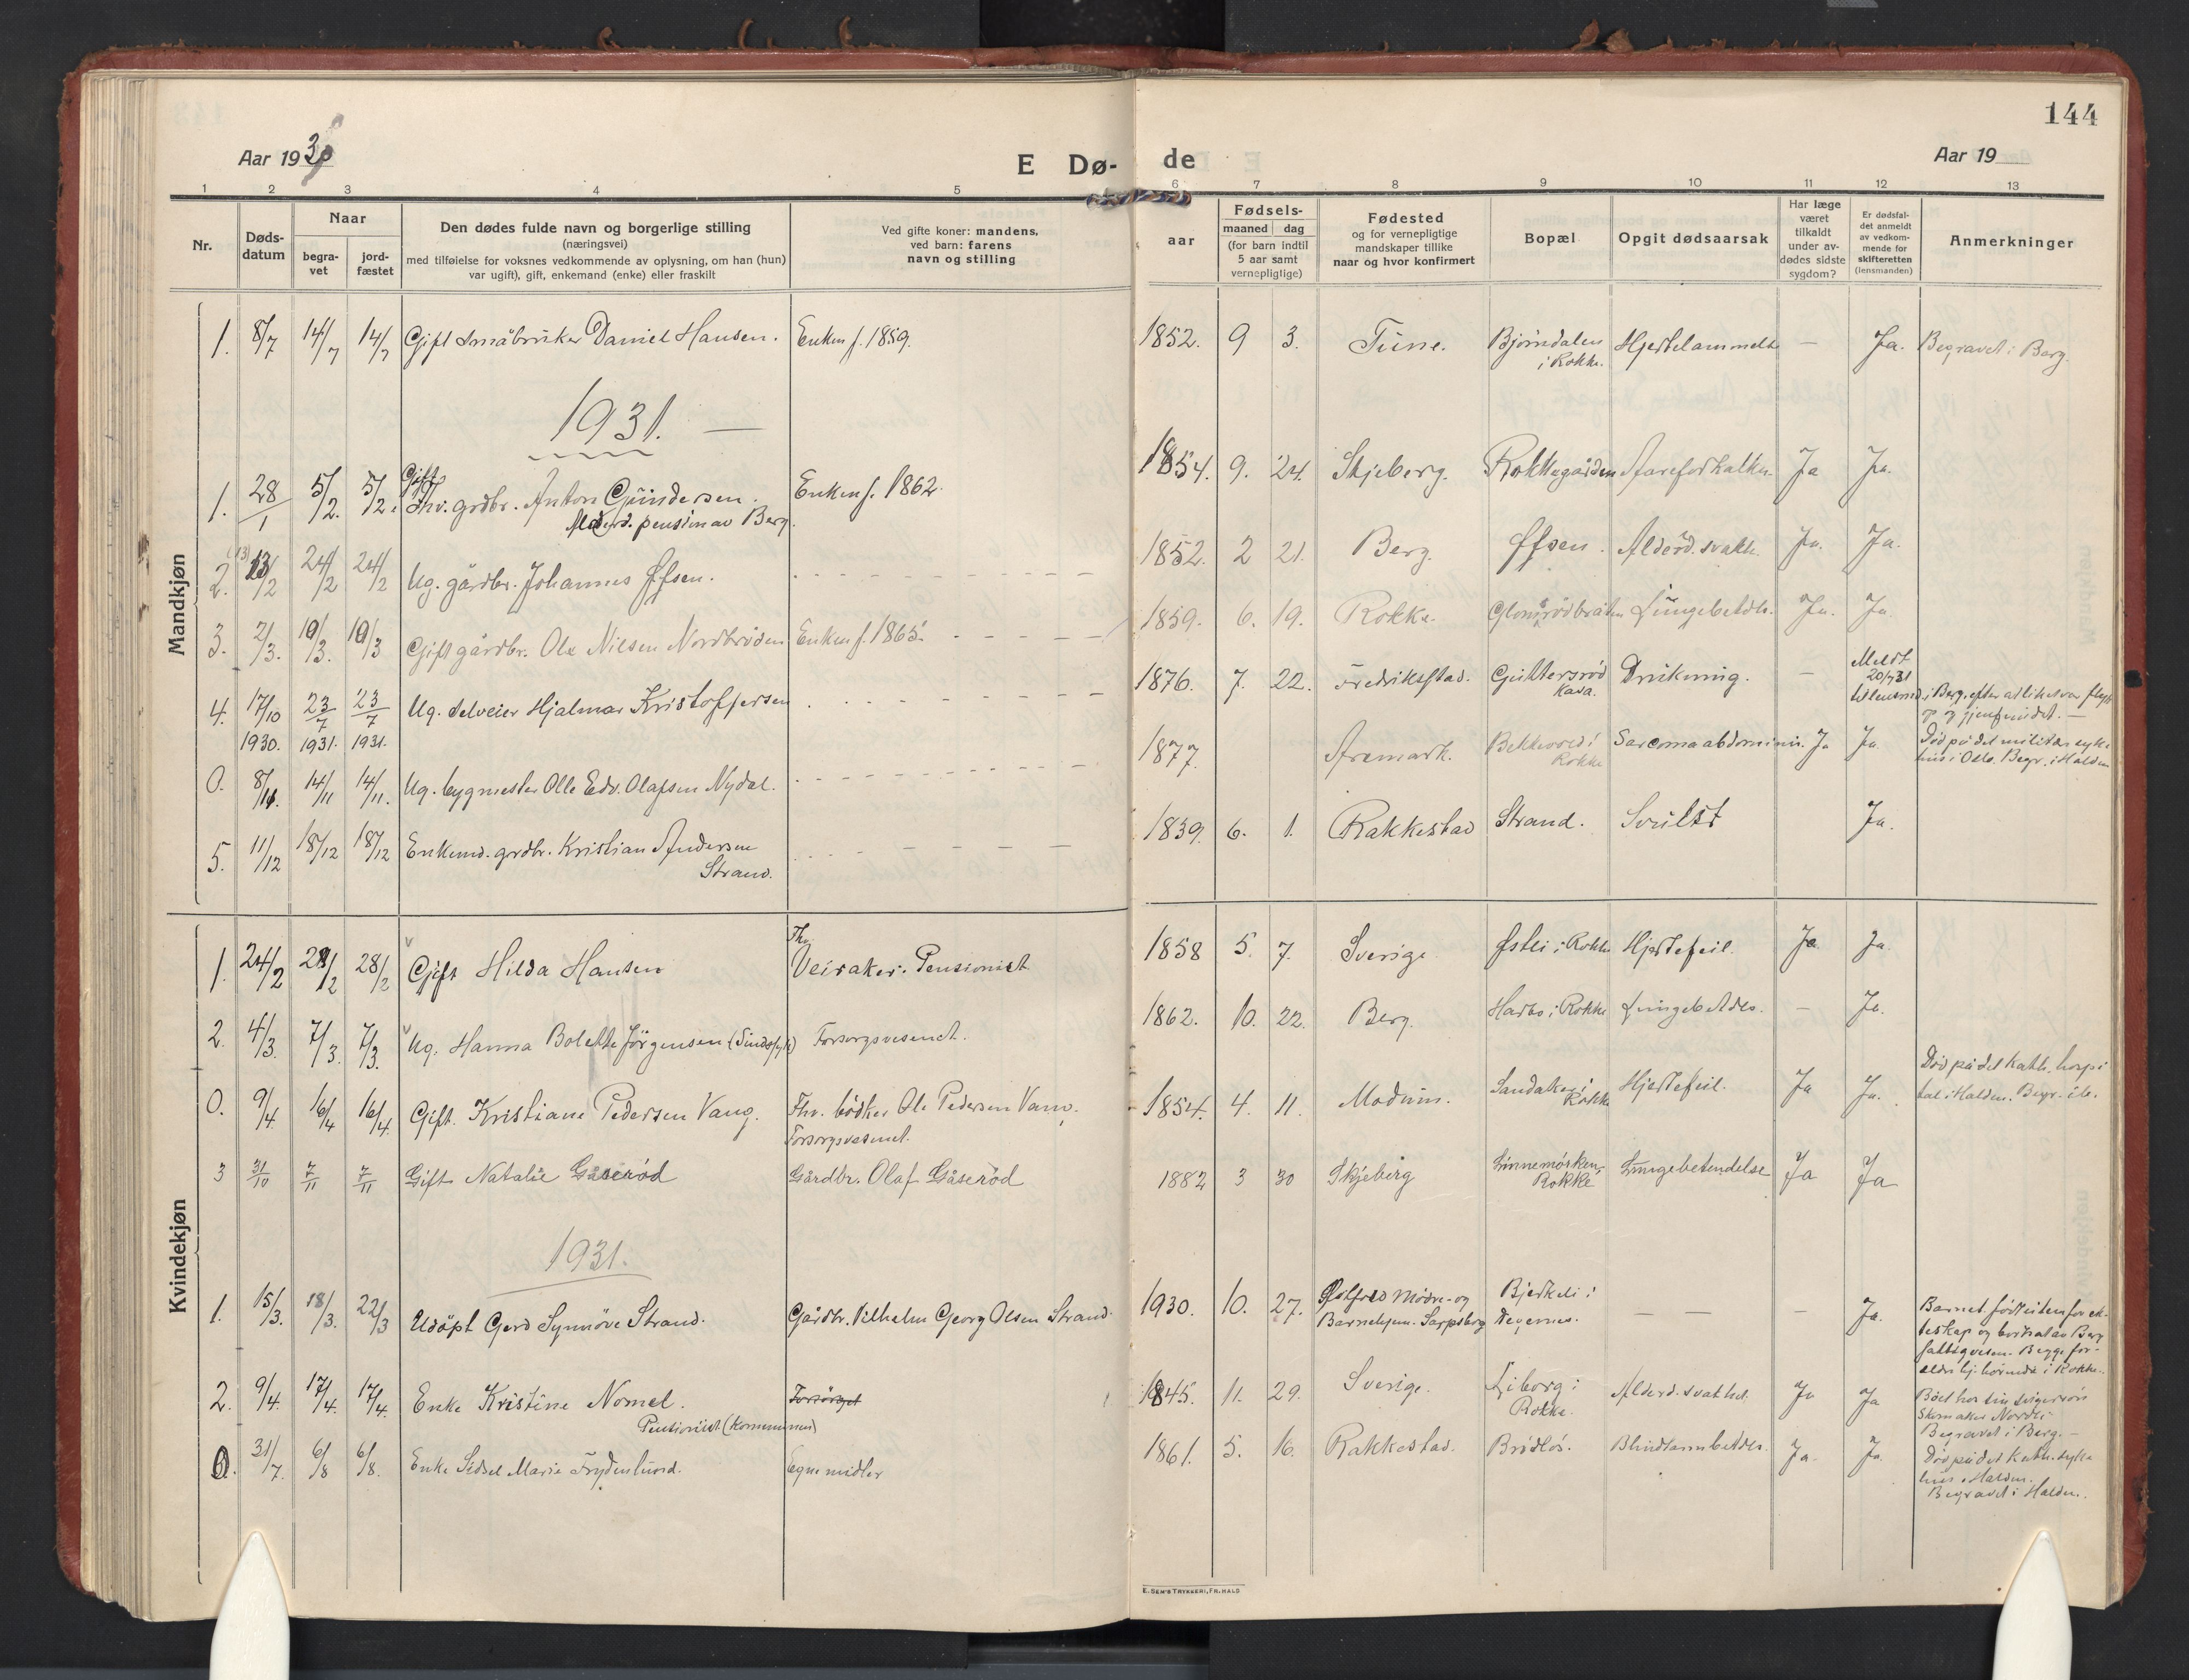 144
Aar 1930
E Dø- de
Aar 19
1 2 3 4 5 6 7 8 9 10 11 12 13
Nr.
Døds-
datum
Naar
begra-
vet
jord-
fæstet
Den dødes fulde navn og borgerlige stilling
(næringsvei)
med tilføielse for voksnes vedkommende av oplysning, om han (hun)
var ugift), gift, enkemand (enke) eller fraskilt
Ved gifte koner: mandens,
ved barn: farens
navn og stilling
aar
Fødsels-
maaned dag
(for barn indtil
5 aar samt
vernepligtige)
Fødested
og for vernepligtige
mandskaper tillike
naar og hvor konfirmert
Bopæl
Opgit dødsaarsak
Har læge
været
tilkaldt
under av-
dødes sidste
sygdom?
Er dødsfal-
det anmeldt
av vedkom-
mende for
skifteretten
(lensmanden)
Anmerkninger
Mandkjøn
1. 8/7 14/7 14/7 Gift småbruker Daniel Hansen. Enken f. 1859. 1852. 9 3. Tune. Bjørndalen Hjertelammelse — Ja. Begravet i Berg.
i Rokke.
1931. —
Gift
1. 28/1 5/2. 5/2. Fhv. grdbr. Anton Gundersen. Enken f. 1862. 1854. 9. 24. Skjeberg. Rokkegården Åreforkalkn. Ja Ja.
Alderd. pension av Berg.
2. (13) 13/2 24/2 24/2 Ug. gårdbr. Johannes Øfsen. 1852. 2 21. Berg. Øfsen. Alderd. svakh. Ja. Ja.
3. 2/3. 10/3. 10/3 Gift gårdbr. Ole Nilsen Nordbrøden Enken f. 1865. 1859. 6. 19. Rokke. Glomsrødbråten Lungebetdls. Ja. Ja
4. 17/10 23/7 23/7 Ug. selveier Hjalmar Kristoffersen 1876. 7. 22. Fredrikstad. Guttersrød Drukning. — Meldt
Kasa. 20/7 31
1930. 1931. 1931. til lensmd. i Berg, efter at liket var fløtt
op og gjenfundet. —
0. 8/11. 14/11 14/11. Ug. bygmester Olle Edv. Olafsen Nydal. 1877. Aremark. Bekkevold i Sarcoma abdominis. Ja Ja. Død på det militære syke
Rokke hus i Oslo. Begr. i Halden
5. 11/12 18/12 18/12 Enkemd. grdbr. Kristian Andersen 1839. 6. 1. Rakkestad Strand. Svulst Ja.
Strand.
Kvindekjøn
Fhv.
1. 24/2 28/2 28/2 Gift Hilda Hansen Veivaker. Pensionist 1858 5. 7. Sverige Østli i Rokke Hjertefeil. Ja Ja.
2. 4/3. 7/3. 7/3. Ug. Hanna Bolette Jörgensen (Sindssyk) Forsorgsvesenet. 1862. 10. 22. Berg. Harbo i Rokke Lungebetdls. — Ja.
0. 9/4. 16/4 16/4. Gift. Kristiane Pedersen Vang. Fhv. bødker Ole Pedersen Vang. 1854. 4. 11. Modum. Sandaker i Hjertefeil. Ja Ja. Død på det kath. hospi-
Rokke tal i Halden. Begr. ib.
Forsorgsvesenet.
3 31/10 7/11 7/11 Gift Natalie Gåserød Gårdbr. Olaf Gåserød 1882 3 30 Skjeberg Linnemörken, Lungebetendelse Ja Ja
Rokke
1931.
1. 15/3. 18/3. 22/3 Udöpt Gerd Synnöve Strand. Gårdbr. Vilhelm Georg Olsen Strand. 1930. 10. 27. Østfold Mödre- og Bjerkeli i — — — Ja. Barnet født utenfor ek-
Barnehjem. Sarpsborg Degernes. teskap og bortsat av Berg
fattigvesen. Begge for-
eldre hj.hørende i Rokke.
2. 9/4. 17/4. 17/4. Enke Kristine Nomel. Forsörget 1845. 11. 29. Sverige. Liborg i Alderd. svakhet. Ja Ja Bodd hos sin svigersøn
Pensionist (kommunen) Rokke. Skomaker Nordli
Begravet i Berg. —
0. 31/7 6/8 6/8. Enke Sidsel Marie Frydenlund. Egne midler 1861. 5. 16. Rakkestad. Brödlös. Blindtarmbetdls. Ja Ja. Död på det kath. syke
hus i Halden.
Begravet i Halden.
E. SEM'S TRYKKERI, FR.HALD